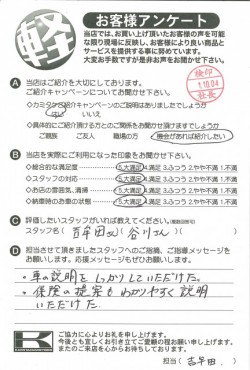 軽
お客様アンケート
当店では、お買い上げのお客様の声を可能な
限り現場に反映し、お客様により良い商品と
サービスを提供する事に努めています。
大変お手数ですが是非お声をお聞かせ下さい。
検印
1.10.04
社長
A 当店はご紹介を大切にしております。
ご紹介キャンペーンについてお聞かせ下さい。
◇カミタケご紹介キャンペーンのご説明はありましたでしょうか
はい いいえ
◇具体的にご紹介頂ける方とのご関係をお聞かせ頂けますでしょうか
ご親族 ご友人 職場の方 機会があれば紹介したい
B 当店を実際にご利用になった印象をお聞かせ下さい。
◇総合的な満足度 5.大満足 4.満足 3.ふつう 2.やや不満 1.不満
◇スタッフの対応 5.大満足 4.満足 3.ふつう 2.やや不満 1.不満
◇お店の雰囲気、清掃 5.大満足 4.満足 3.ふつう 2.やや不満 1.不満
◇納車時のお車の状態 5.大満足 4.満足 3.ふつう 2.やや不満 1.不満
C 評価したいスタッフがいれば教えてください。(複数回答可)
スタッフ名( 吉年田さん 谷川さん )
D 担当させて頂きましたスタッフへのご感想、ご指導メッセージを
お願いします。応援メッセージもぜひお願いします。
・車の説明をしっかりしていただけた。
・保険の提案もわかりやすく説明
いただけた。
K
ご協力に心よりお礼を申し上げます。
今後とも宜しくお引き立てご愛顧の程お願い申し上げます。
またのご来店を心からお待ちしております。
担当 吉年田